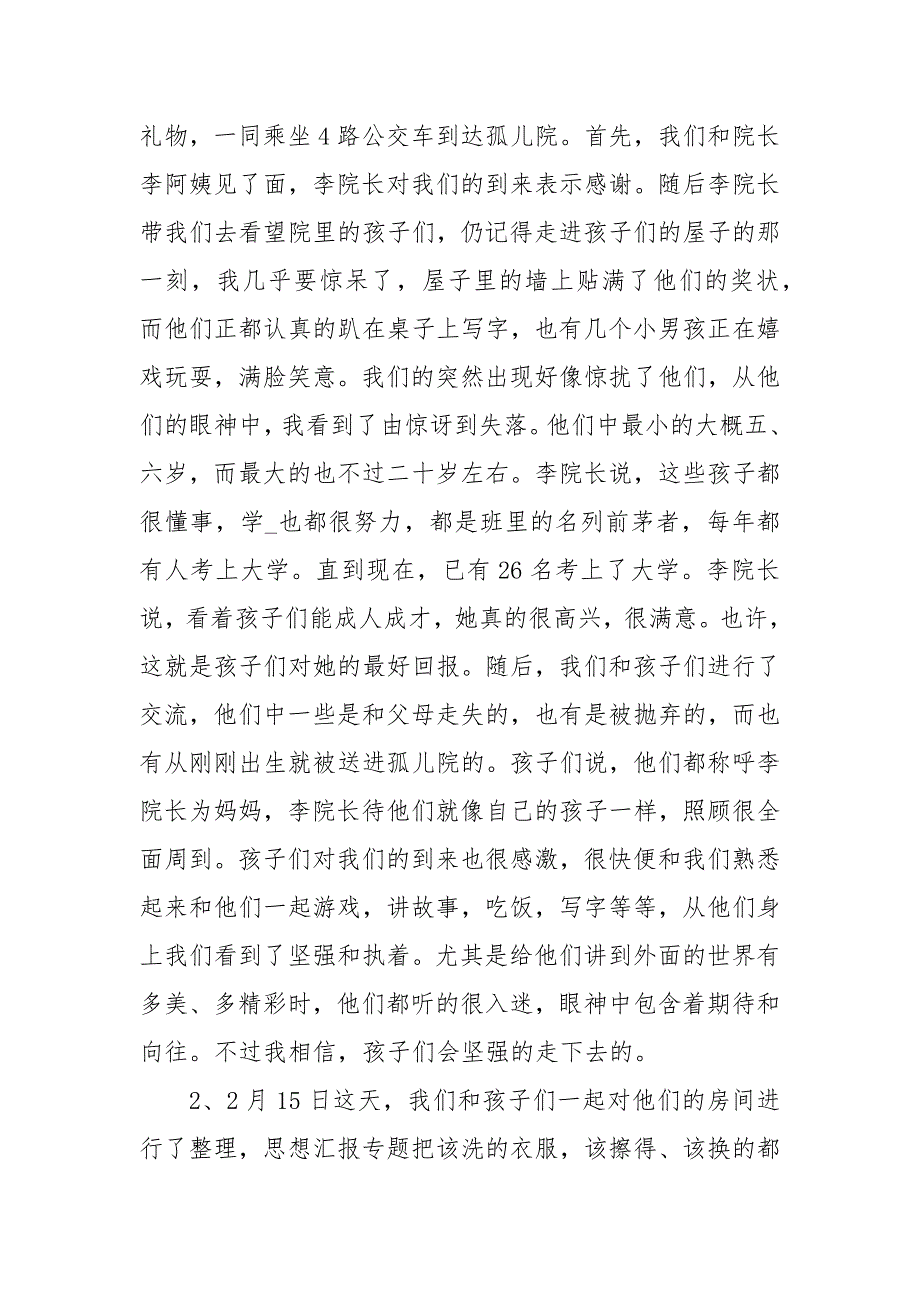 礼物，一同乘坐4路公交车到达孤儿院。首先，我们和院长
李阿姨见了面，李院长对我们的到来表示感谢。随后李院长
带我们去看望院里的孩子们，仍记得走进孩子们的屋子的那
一刻，我几乎要惊呆了，屋子里的墙上贴满了他们的奖状，
而他们正都认真的趴在桌子上写字，也有几个小男孩正在嬉
戏玩耍，满脸笑意。我们的突然出现好像惊扰了他们，从他
们的眼神中，我看到了由惊讶到失落。他们中最小的大概五、
六岁，而最大的也不过二十岁左右。李院长说，这些孩子都
很懂事，学_也都很努力，都是班里的名列前茅者，每年都
有人考上大学。直到现在，已有26名考上了大学。李院长
说，看着孩子们能成人成才，她真的很高兴，很满意。也许，
这就是孩子们对她的最好回报。随后，我们和孩子们进行了
交流，他们中一些是和父母走失的，也有是被抛弃的，而也
有从刚刚出生就被送进孤儿院的。孩子们说，他们都称呼李
院长为妈妈，李院长待他们就像自己的孩子一样，照顾很全
面周到。孩子们对我们的到来也很感激，很快便和我们熟悉
起来和他们一起游戏，讲故事，吃饭，写字等等，从他们身
上我们看到了坚强和执着。尤其是给他们讲到外面的世界有
多美、多精彩时，他们都听的很入迷，眼神中包含着期待和
向往。不过我相信，孩子们会坚强的走下去的。
2、2月15日这天，我们和孩子们一起对他们的房间进
行了整理，思想汇报专题把该洗的衣服，该擦得、该换的都